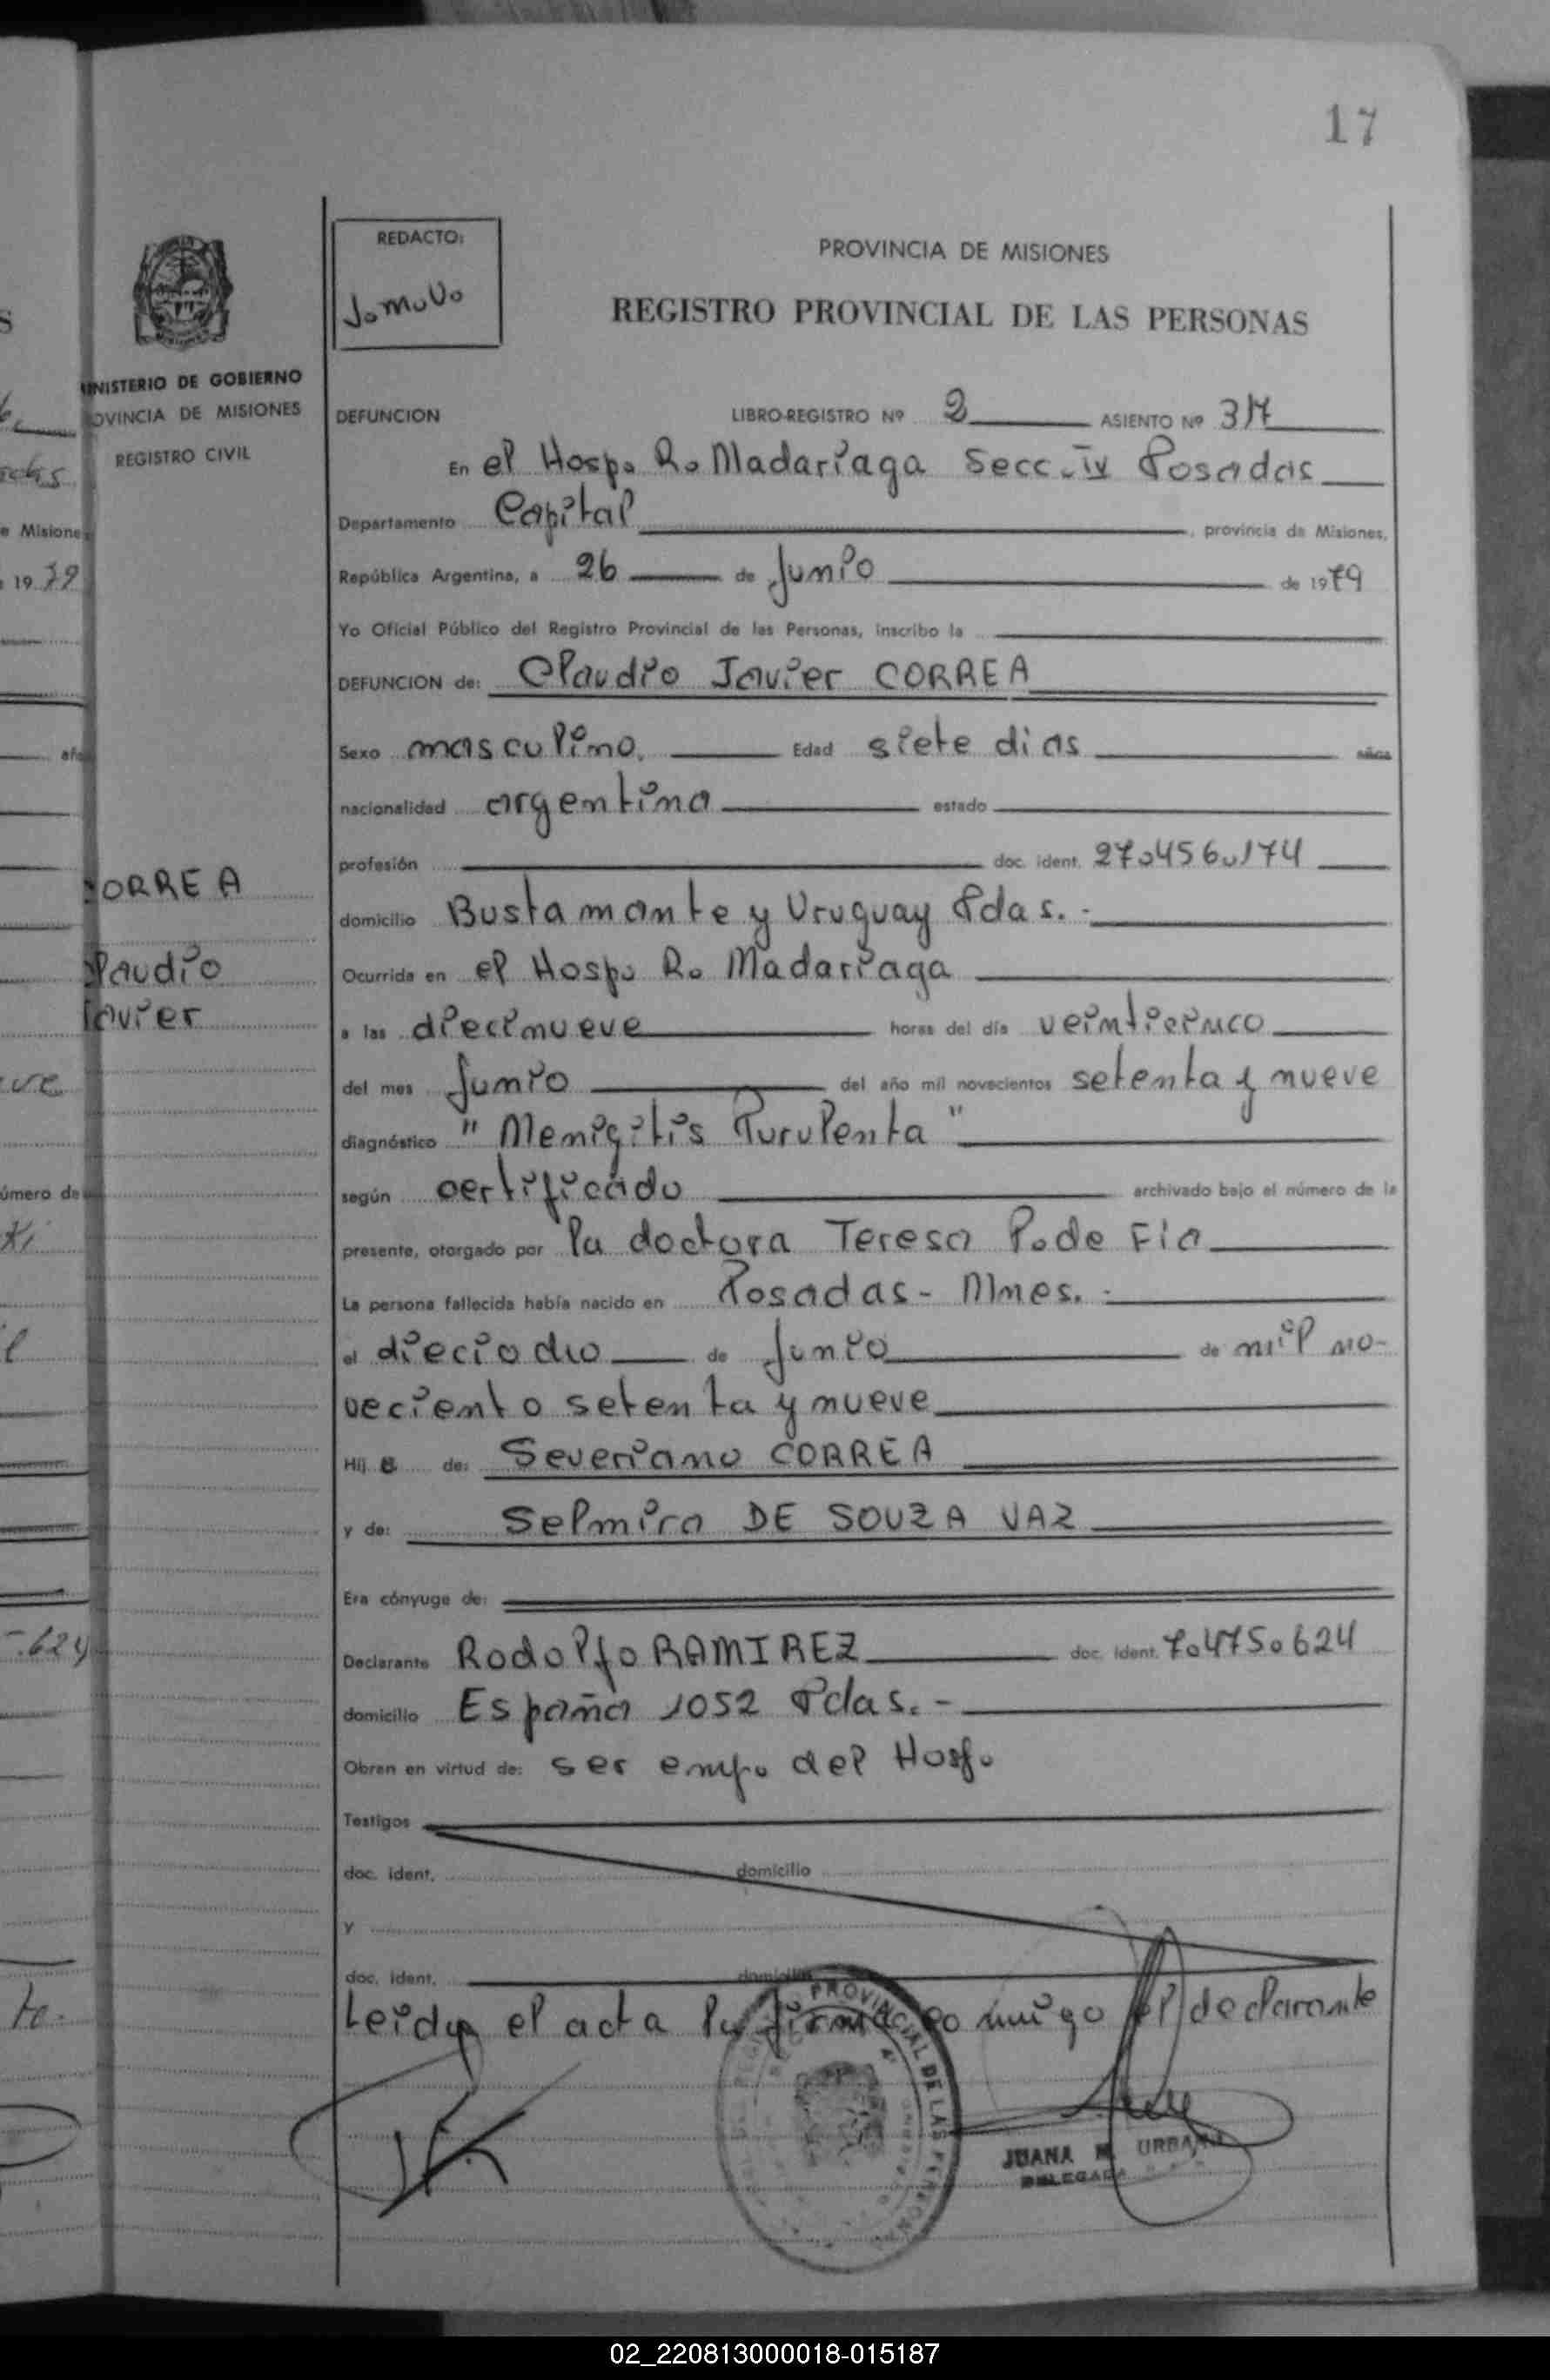 17
REDACTO:
PROVINCIA DE MISIONES
REGISTRO PROVINCIAL DE LAS PERSONAS
MINISTERIO DE GOBIERNO
PROVINCIA DE MISIONES
REGISTRO CIVIL
DEFUNCION LIBRO-REGISTRO Nº 2 ASIENTO Nº 317
En el Hosp. R. Madariaga Secc. IV Posadas
Departamento Capital, provincia de Misiones,
República Argentina, a 26 de Junio de 1979
Yo Oficial Público del Registro Provincial de las Personas, inscribo la
DEFUNCION de: Claudio Javier CORREA
Sexo masculino. Edad siete dias años
nacionalidad argentina estado
profesión doc. ident. 27.456.174
domicilio Bustamante y Uruguay Pdas. -
Ocurrida en el Hosp. R. Madariaga
a las diecinueve horas del día veinticinco
del mes Junio del año mil novecientos setenta y nueve
diagnóstico "Menigitis Purulenta"
según certificado archivado bajo el número de la
presente, otorgado por la doctora Teresa P. de Fia
La persona fallecida había nacido en Posadas - Mnes. -
el dieciocho de Junio de mil no-
veciento setenta y nueve
Hij o de: Severiano CORREA
y de: Selmira DE SOUZA VAZ
Era cónyuge de:
Declarante Rodolfo RAMIREZ doc. ident. 7.475.624
domicilio España 1052 Pdas. -
Obran en virtud de: ser emp. del Hosp.
Testigos
doc. ident. domicilio
y
doc. ident. domicilio
Leida el acta la firma conmigo el declarante
JUANA M. URBANA
DELEGADA
PROVINCIAL DE LAS PERSONAS
CORREA
Claudio
Javier
e Misiones
19 79
número de
.624
02_220813000018-015187